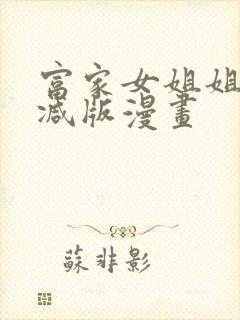 富家女姐姐
减版漫畫
蘇非影